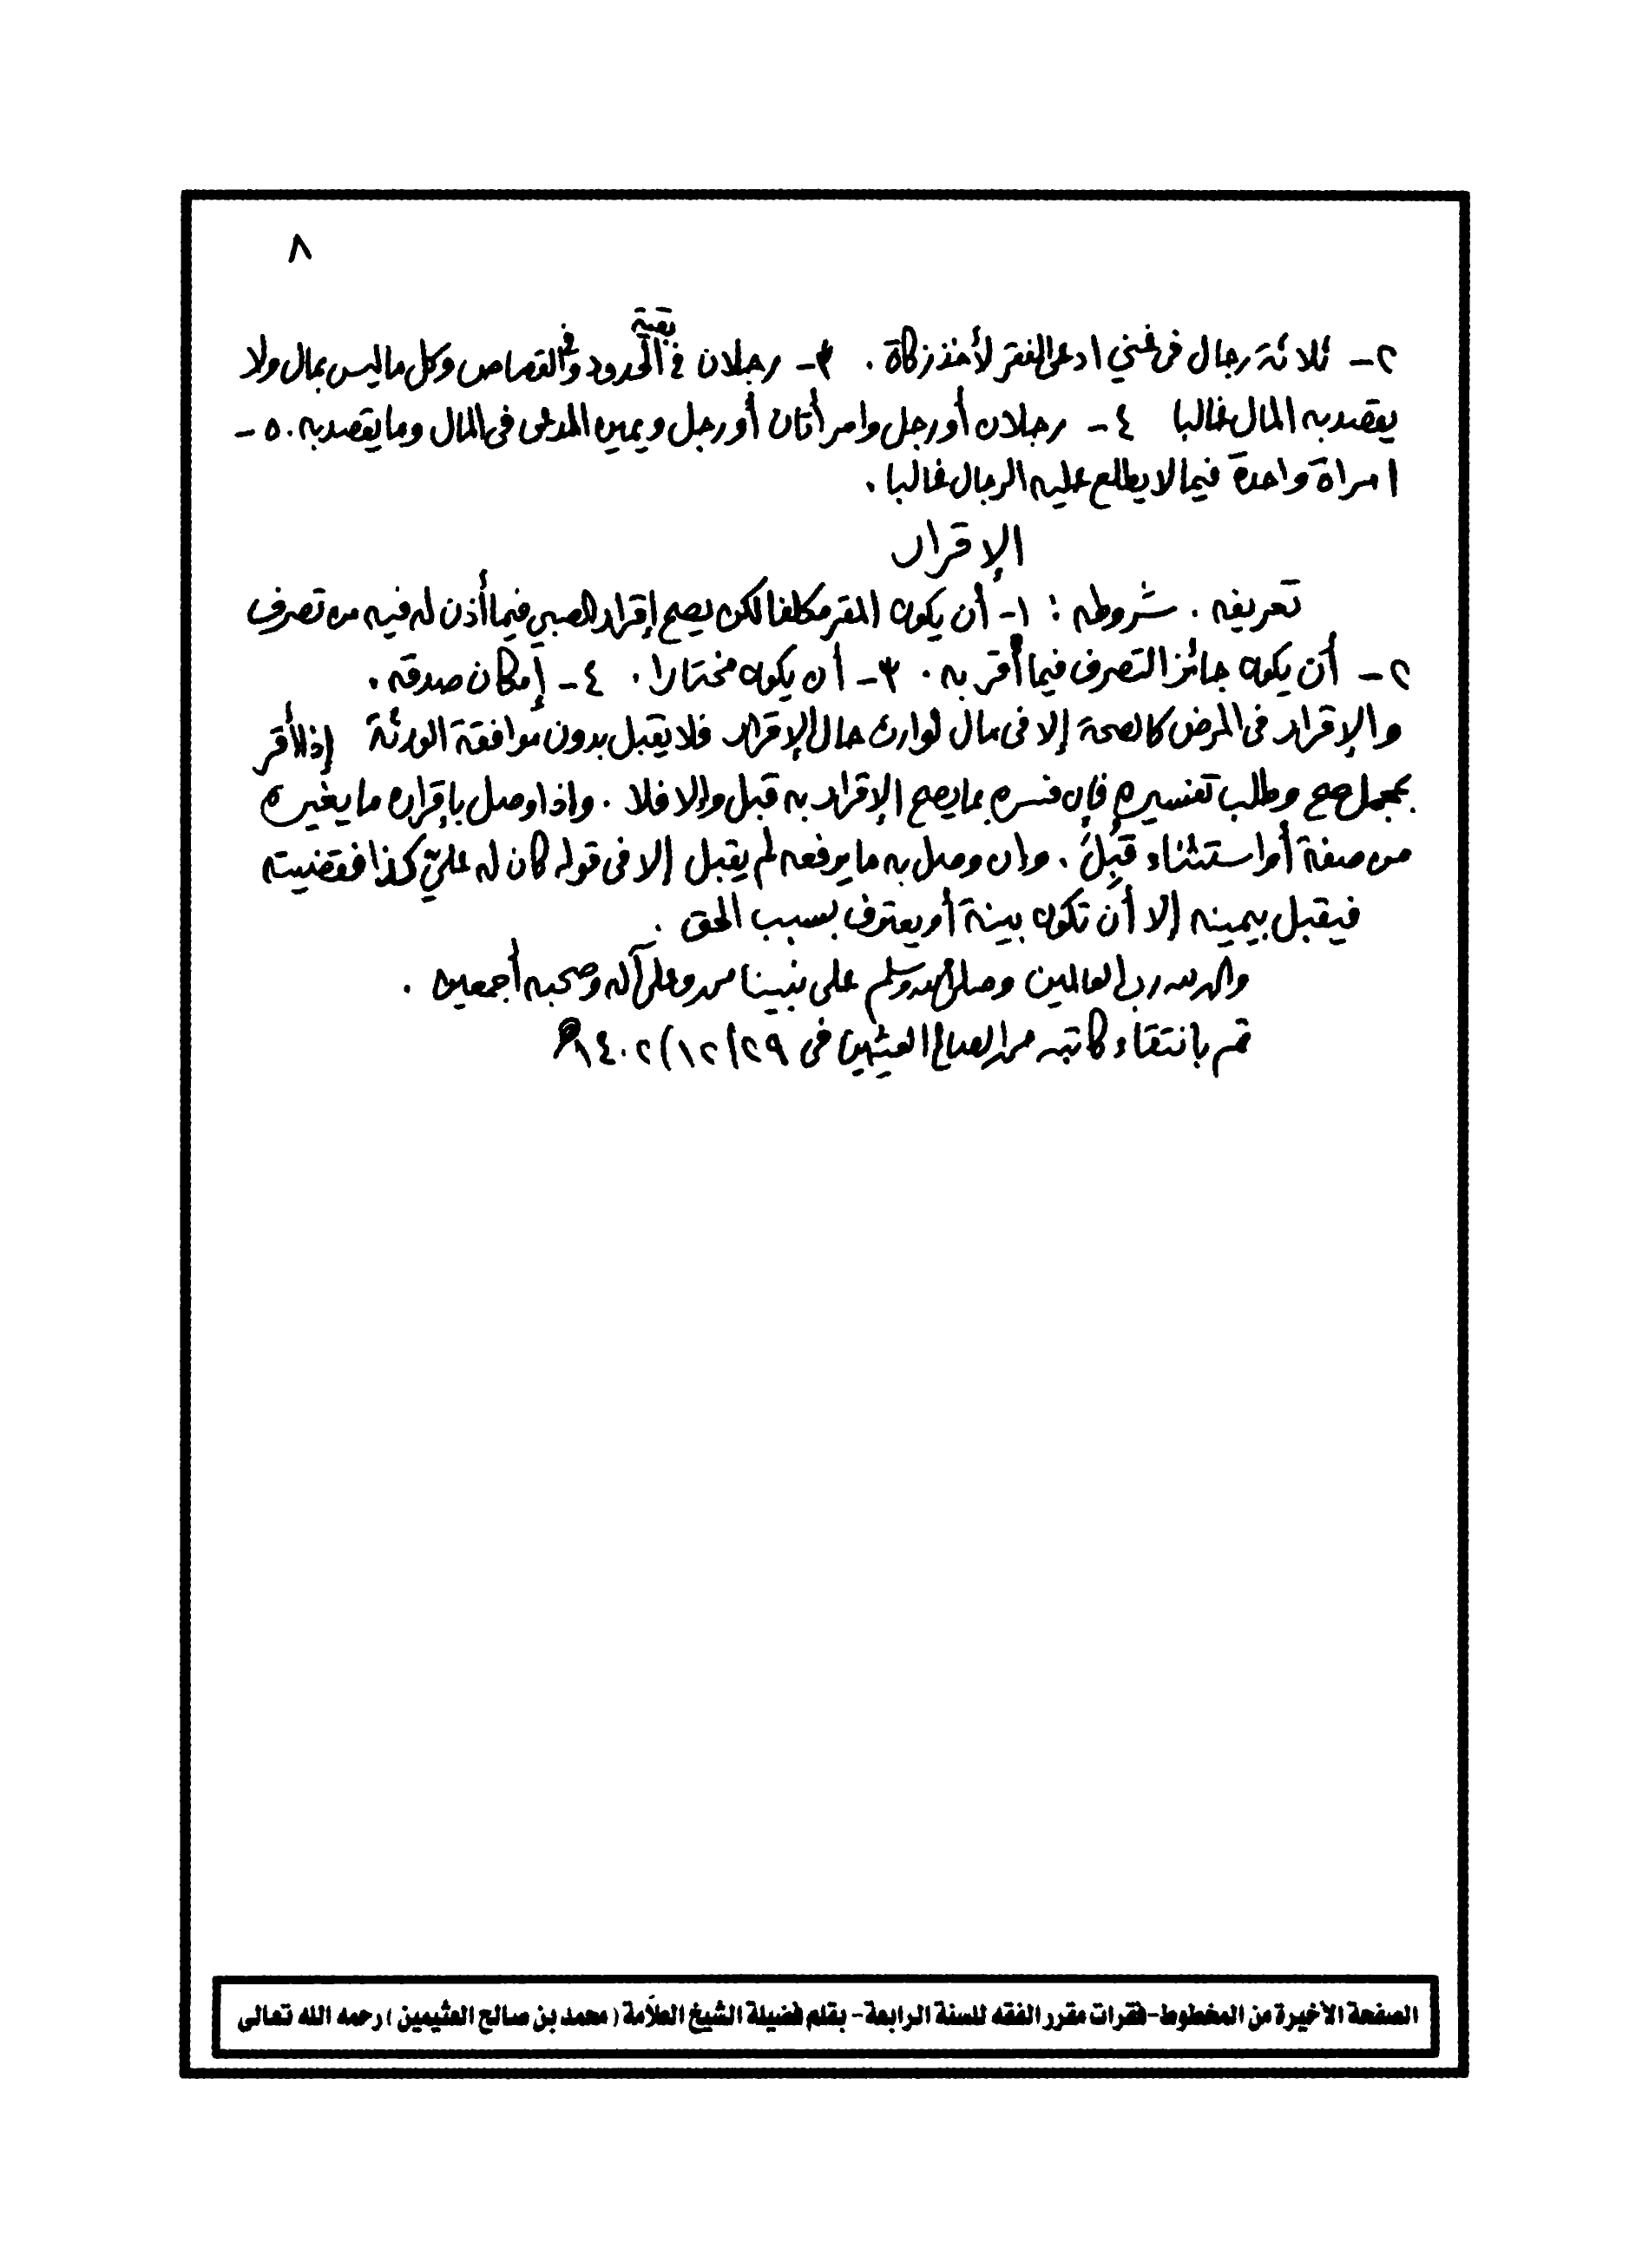 ٨
٢- ثلاثة رجال فى غني ادعى الفقر لأخذ زكاة . ٣- رجلان في بقية الحدود وفي القصاص وكل ما ليس بمال ولا
يقصد به المال غالبا ٤- رجلان أو رجل وامرأتان أو رجل ويمين المدعى فى المال وما يقصد به . ٥-
امراة واحدة فيما لا يطلع عليه الرجال غالبا .
الإقرار
تعريفه . شروطه : ١- أن يكون المقر مكلفا لكن يصح إقرار الصبي فيما أذن له فيه من تصرف
٢- أن يكون جائز التصرف فيما أقر به . ٣- أن يكون مختارا . ٤- إمكان صدقه .
والإقرار فى المرض كالصحة إلا فى مال لوارث حال الإقرار فلا يقبل بدون موافقة الورثة إذا أقر
بمجمل صح وطلب تفسيره فإن فسره بما يصح الإقرار به قبل وإلا فلا . واذا وصل بإقراره ما يغيره
من صفة أو استثناء قُبِلَ . وان وصل به ما يرفعه لم يقبل إلا فى قوله كان له عليّ كذا فقضيته
فيقبل بيمينه إلا أن تكون بينة أو يعترف بسبب الحق .
والحمد لله رب العالمين وصلى الله وسلم على نبينا محمد وعلى آله وصحبه أجمعين .
تم بانتقاء كاتبه محمد الصالح العثيمين فى ٢٩/١٢/١٤٠٢هـ
الصفحة الأخيرة من المخطوط-فقرات مقرر الفقه للسنة الرابعة- بقلم فضيلة الشيخ العلاّمة (محمد بن صالح العثيمين) رحمه الله تعالى